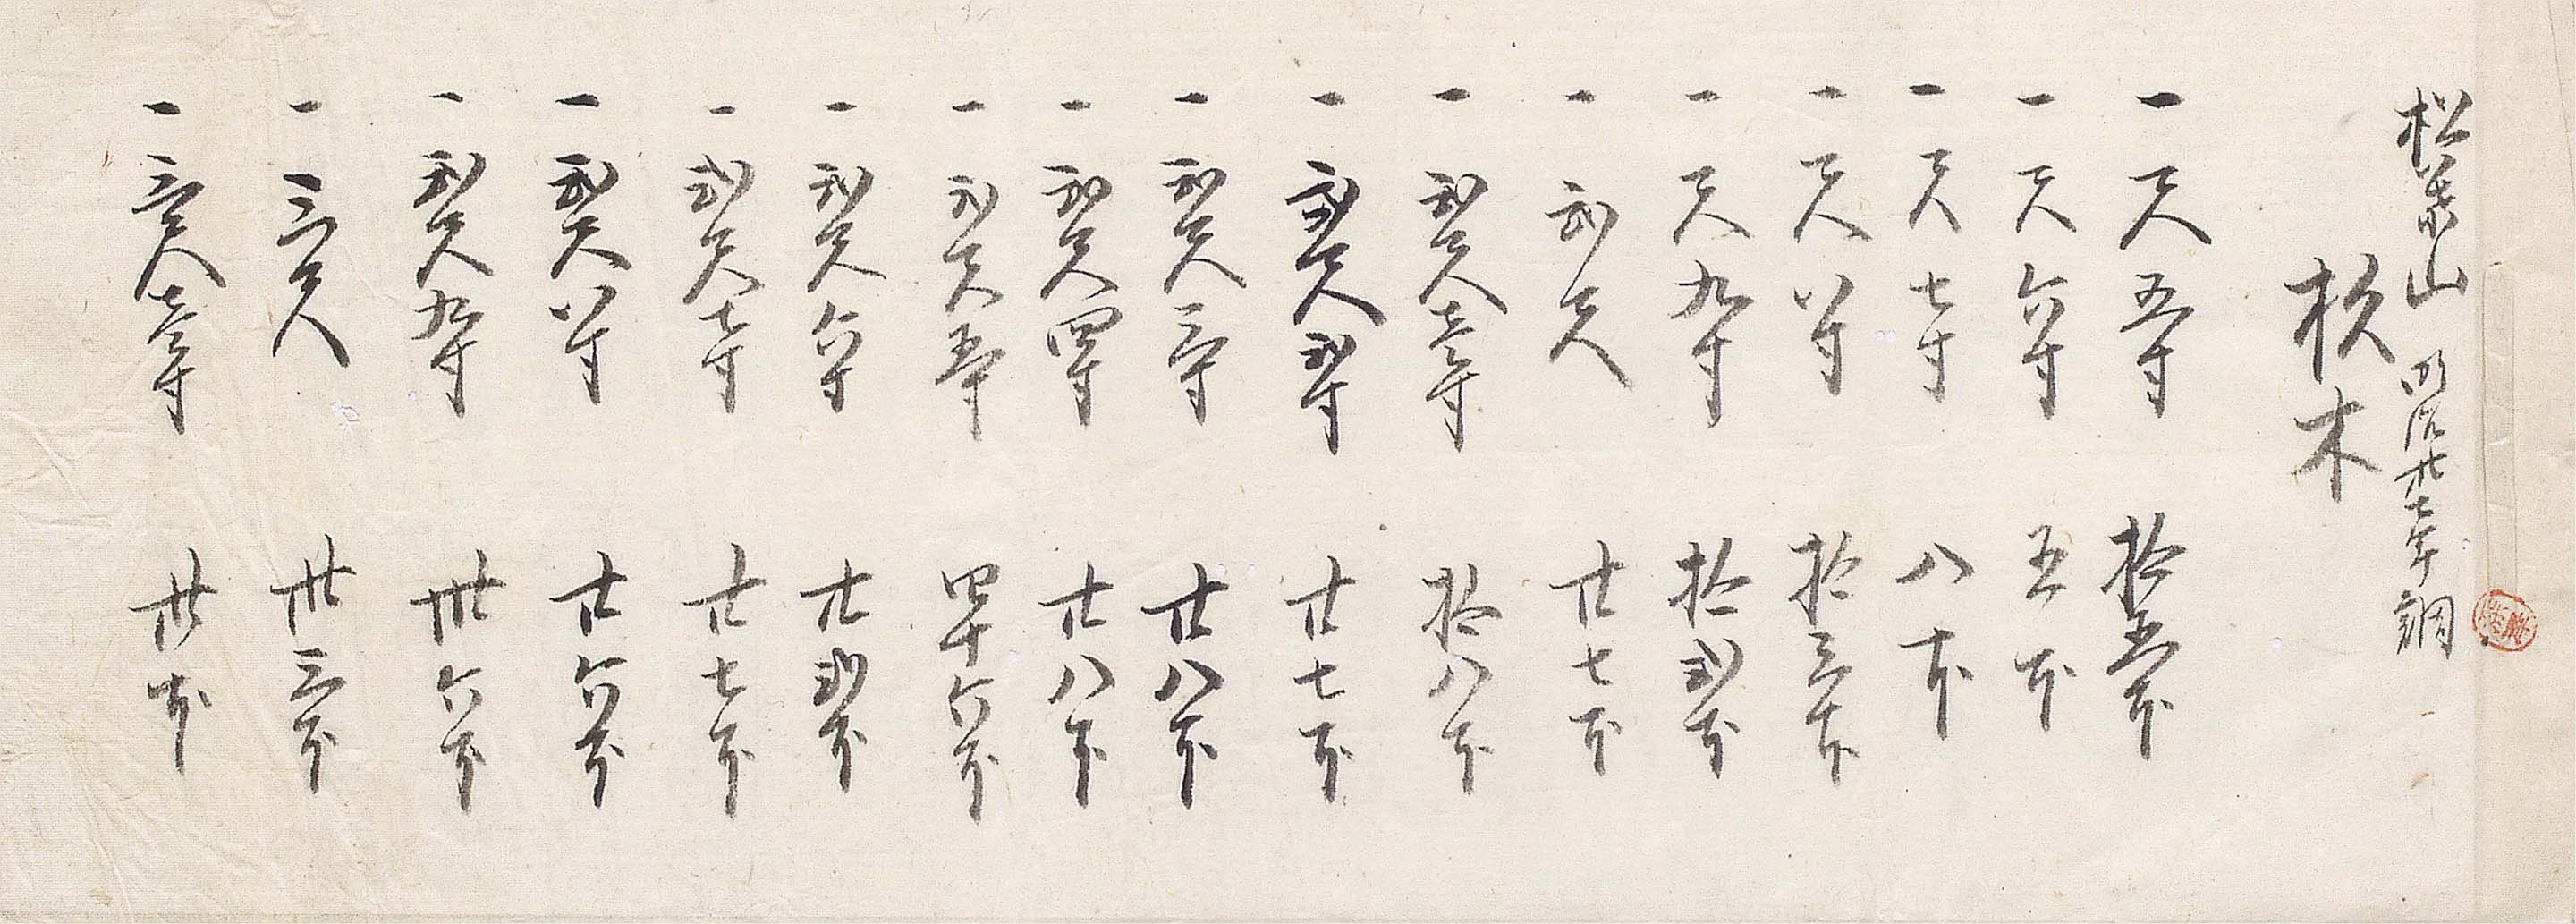 松葉山 明治廿七年調
杉木
一 尺五寸 拾五本
一 尺六寸 五本
一 尺七寸 八本
一 尺八寸 拾三本
一 尺九寸 拾弐本
一 弐尺 廿七本
一 弐尺壱寸 拾八本
一 弐尺弐寸 廿七本
一 弐尺三寸 廿八本
一 弐尺四寸 廿八本
一 弐尺五寸 四十六本
一 弐尺六寸 廿弐本
一 弐尺七寸 廿七本
一 弐尺八寸 廿六本
一 弐尺九寸 卅六本
一 三尺 卅三本
一 三尺壱寸 卅本